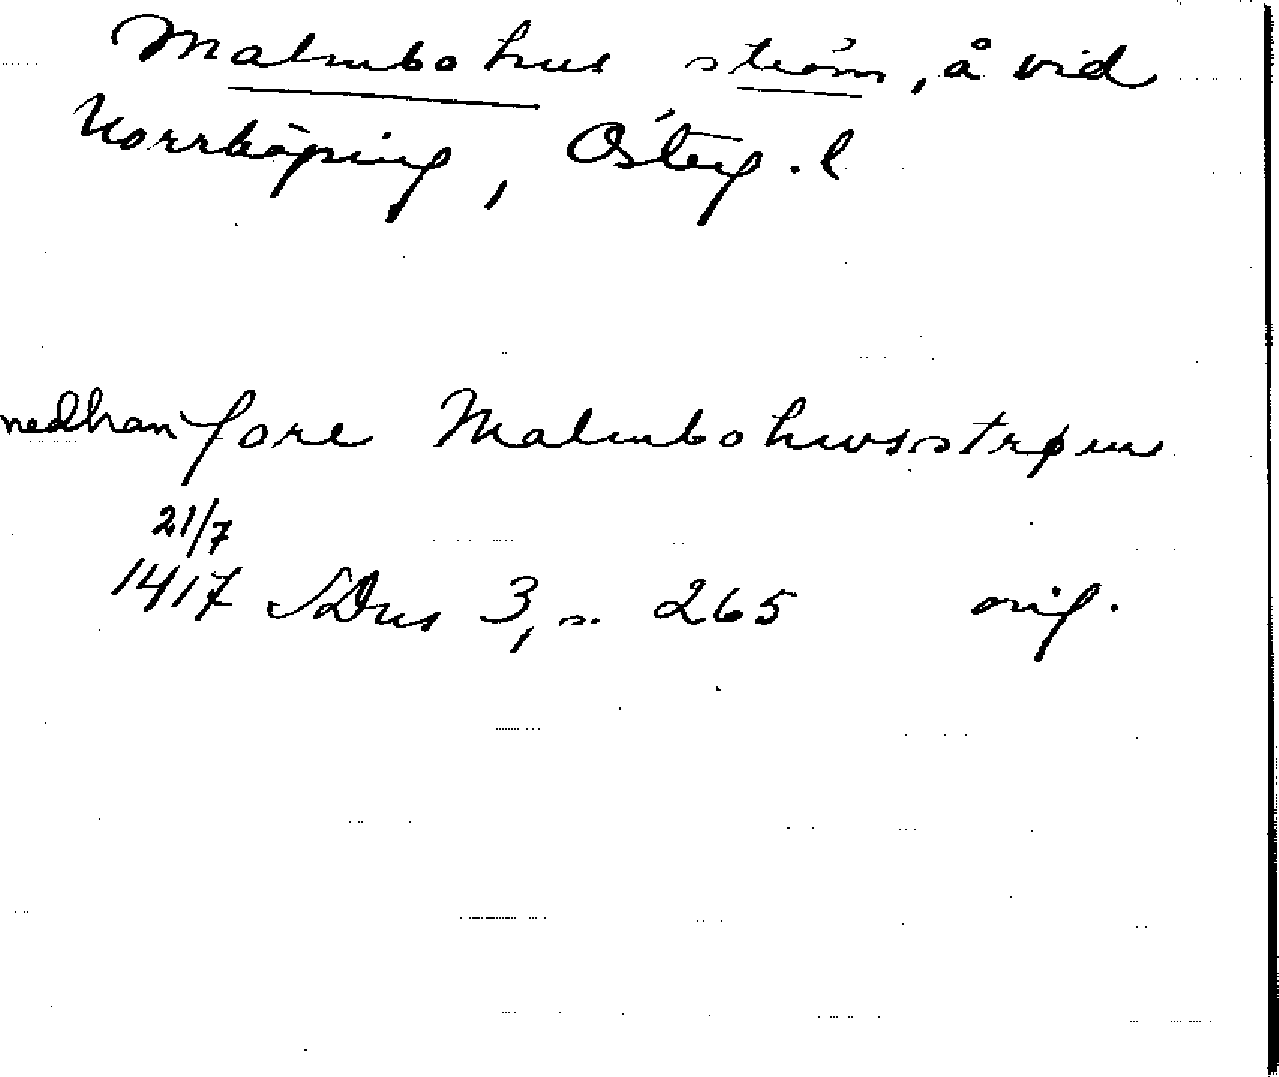 Malmbohus ström, å vid
Norrköping, Österg. l
nedhan fore Malmbohwsstrøm
21/7
1417 SDns 3, s. 265 orig.